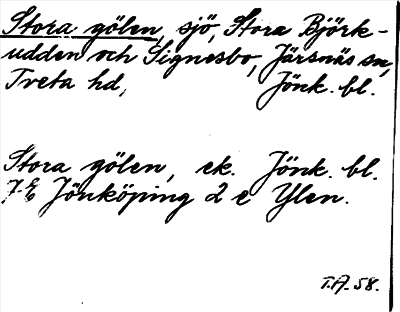 Stora gölen, sjö, Stora Björk-
udden och Signesbo, Järsnäs sn,
Tveta hd, Jönk. bl.
Stora gölen, ek. Jönk. bl.
7 E Jönköping 2 e Ylen.
T.A. 58.